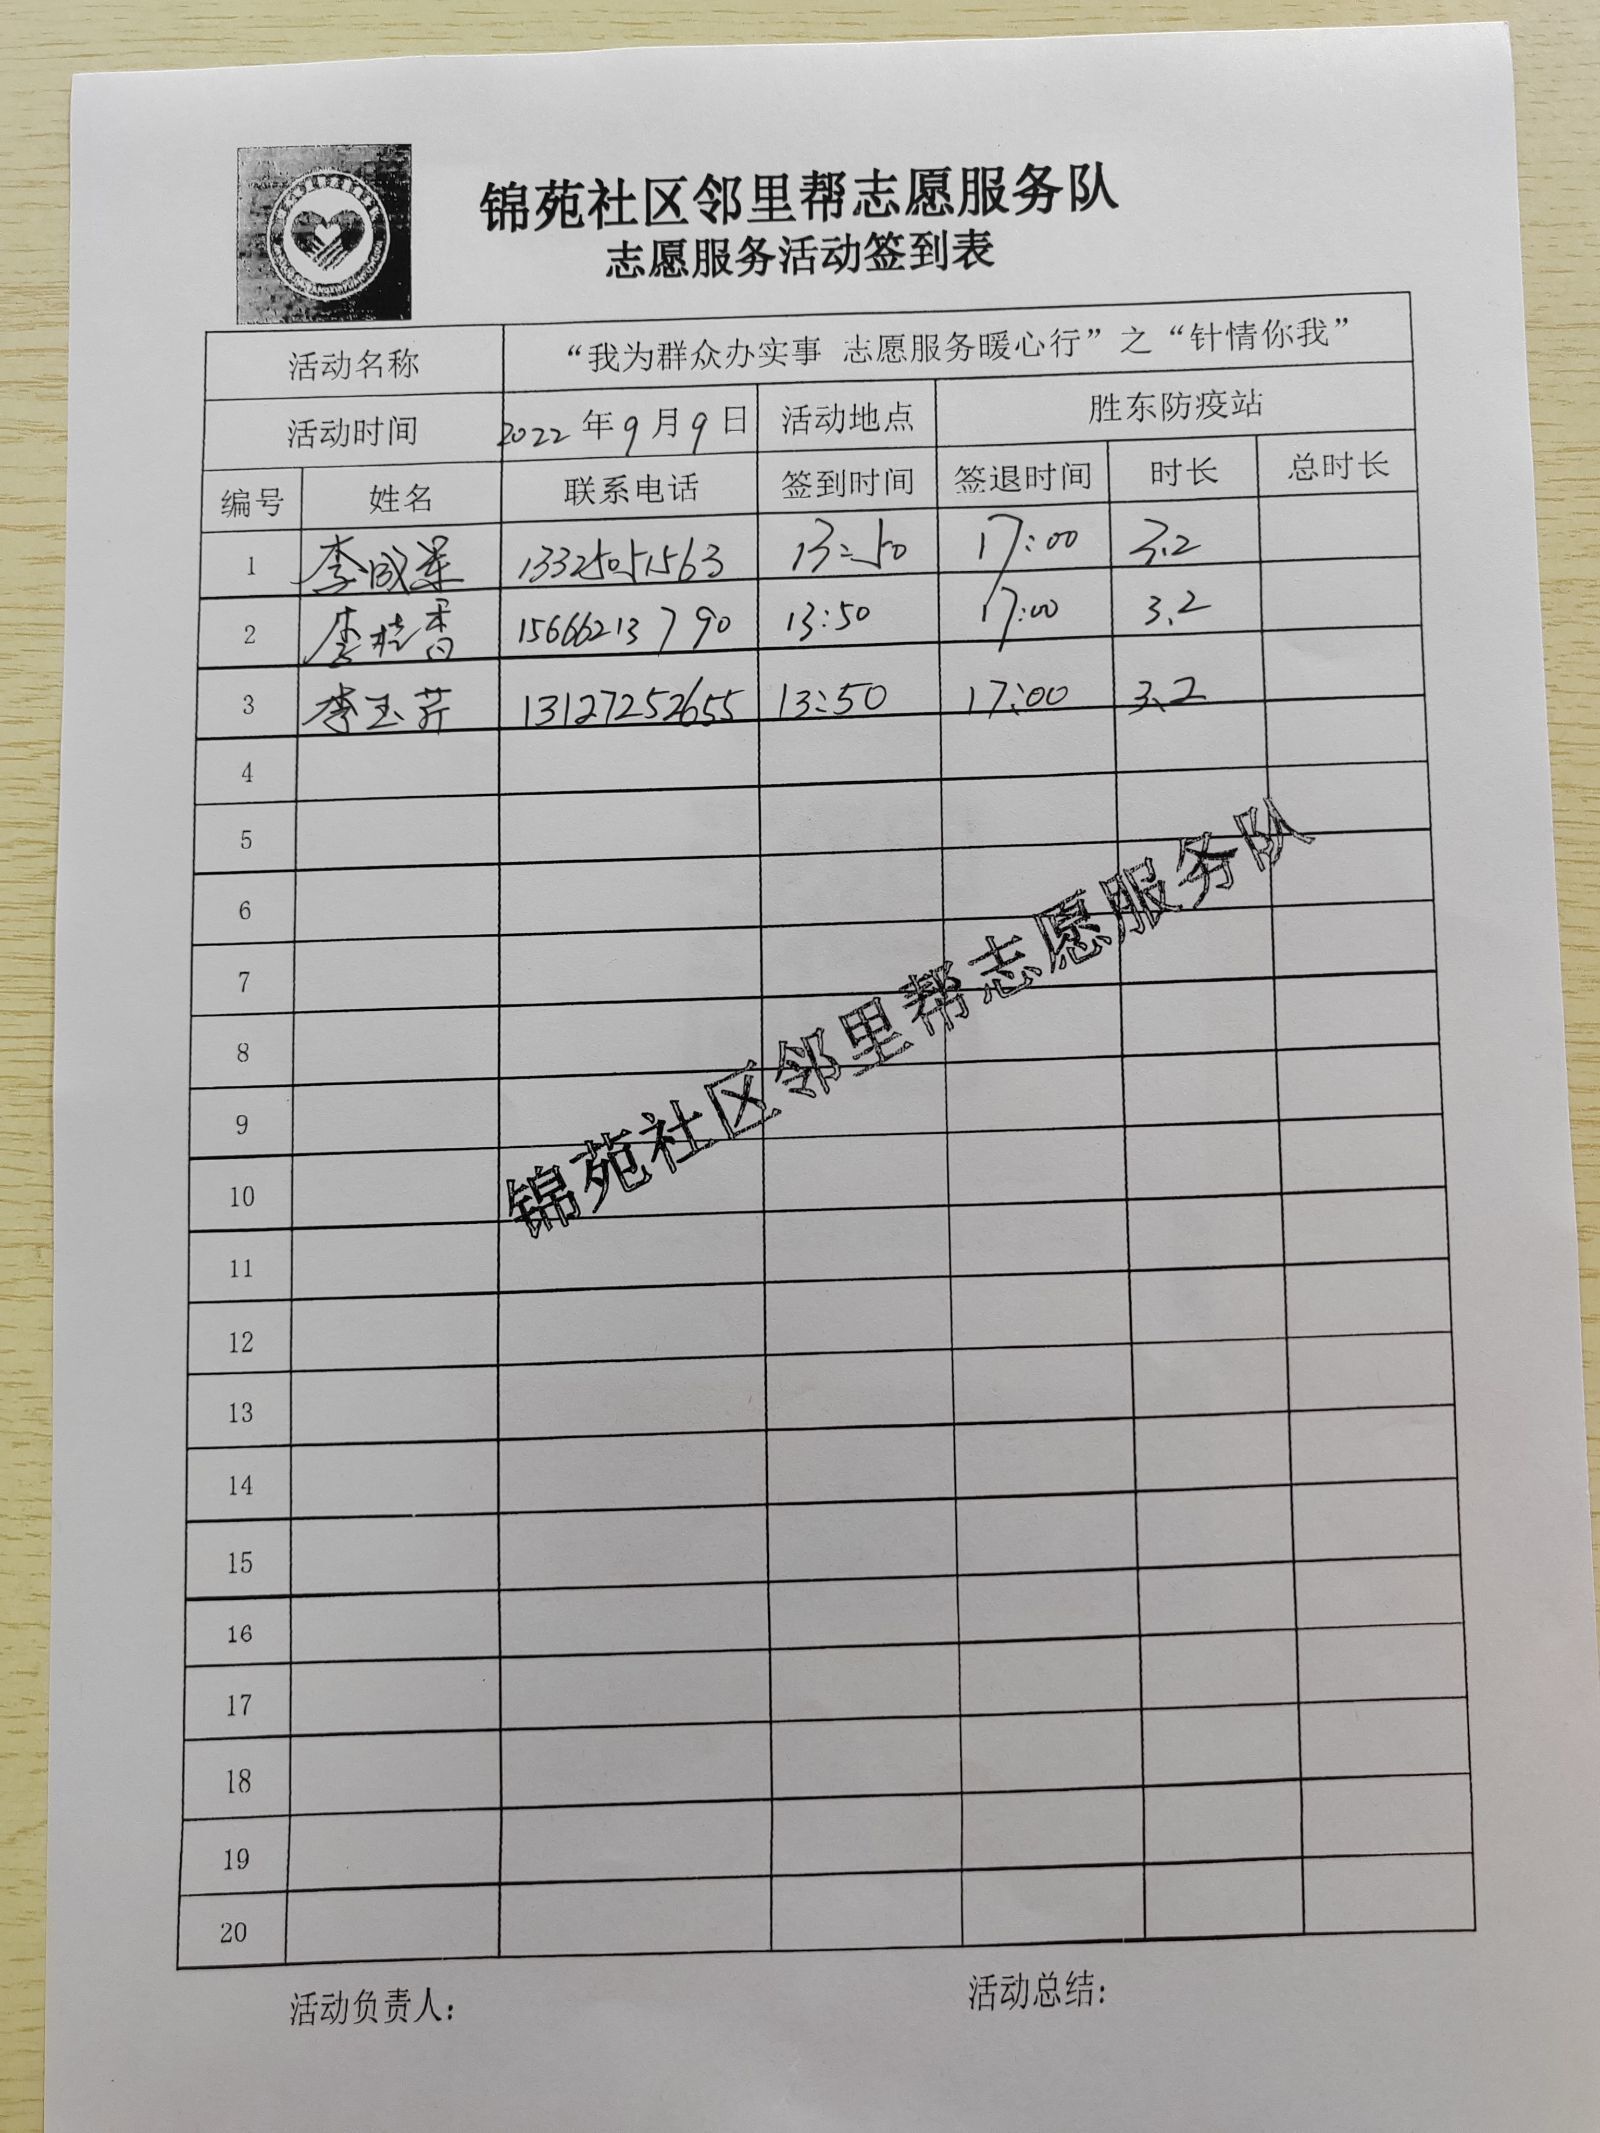 锦苑社区邻里帮志愿服务队
志愿服务活动签到表
活动名称 “我为群众办实事 志愿服务暖心行”之“针情你我”
活动时间 2022年9月9日 活动地点 胜东防疫站
编号 姓名 联系电话 签到时间 签退时间 时长 总时长
1 李成 13325051563 13:50 17:00 3.2
2 李桂香 15666213790 13:50 17:00 3.2
3 李玉芹 13127252655 13:50 17:00 3.2
4
5
6
7
8
9
10
11
12
13
14
15
16
17
18
19
20
锦苑社区邻里帮志愿服务队
活动负责人： 活动总结：